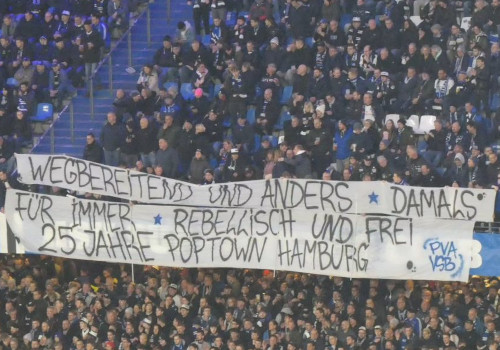 WEGBEREITEND UND ANDERS ★ DAMALS
FÜR IMMER ★ REBELLISCH UND FREI
25 JAHRE POPTOWN HAMBURG
PVA
VSB